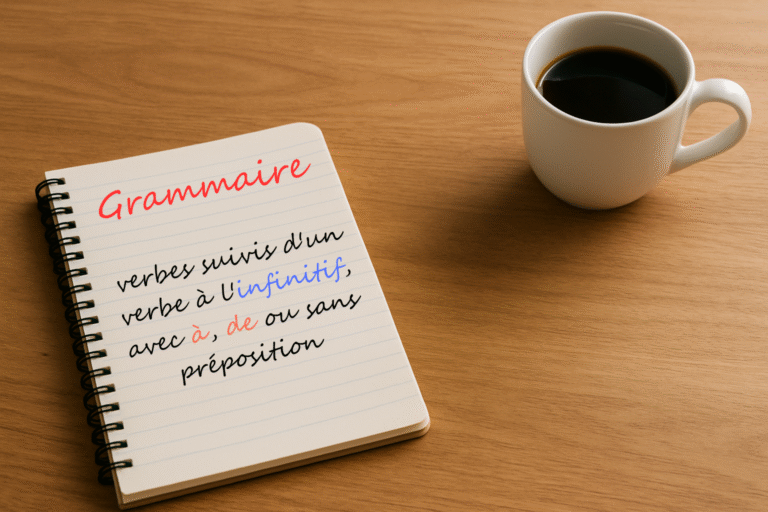 Grammaire
verbes suivis d'un
verbe à l'infinitif,
avec à, de ou sans
préposition